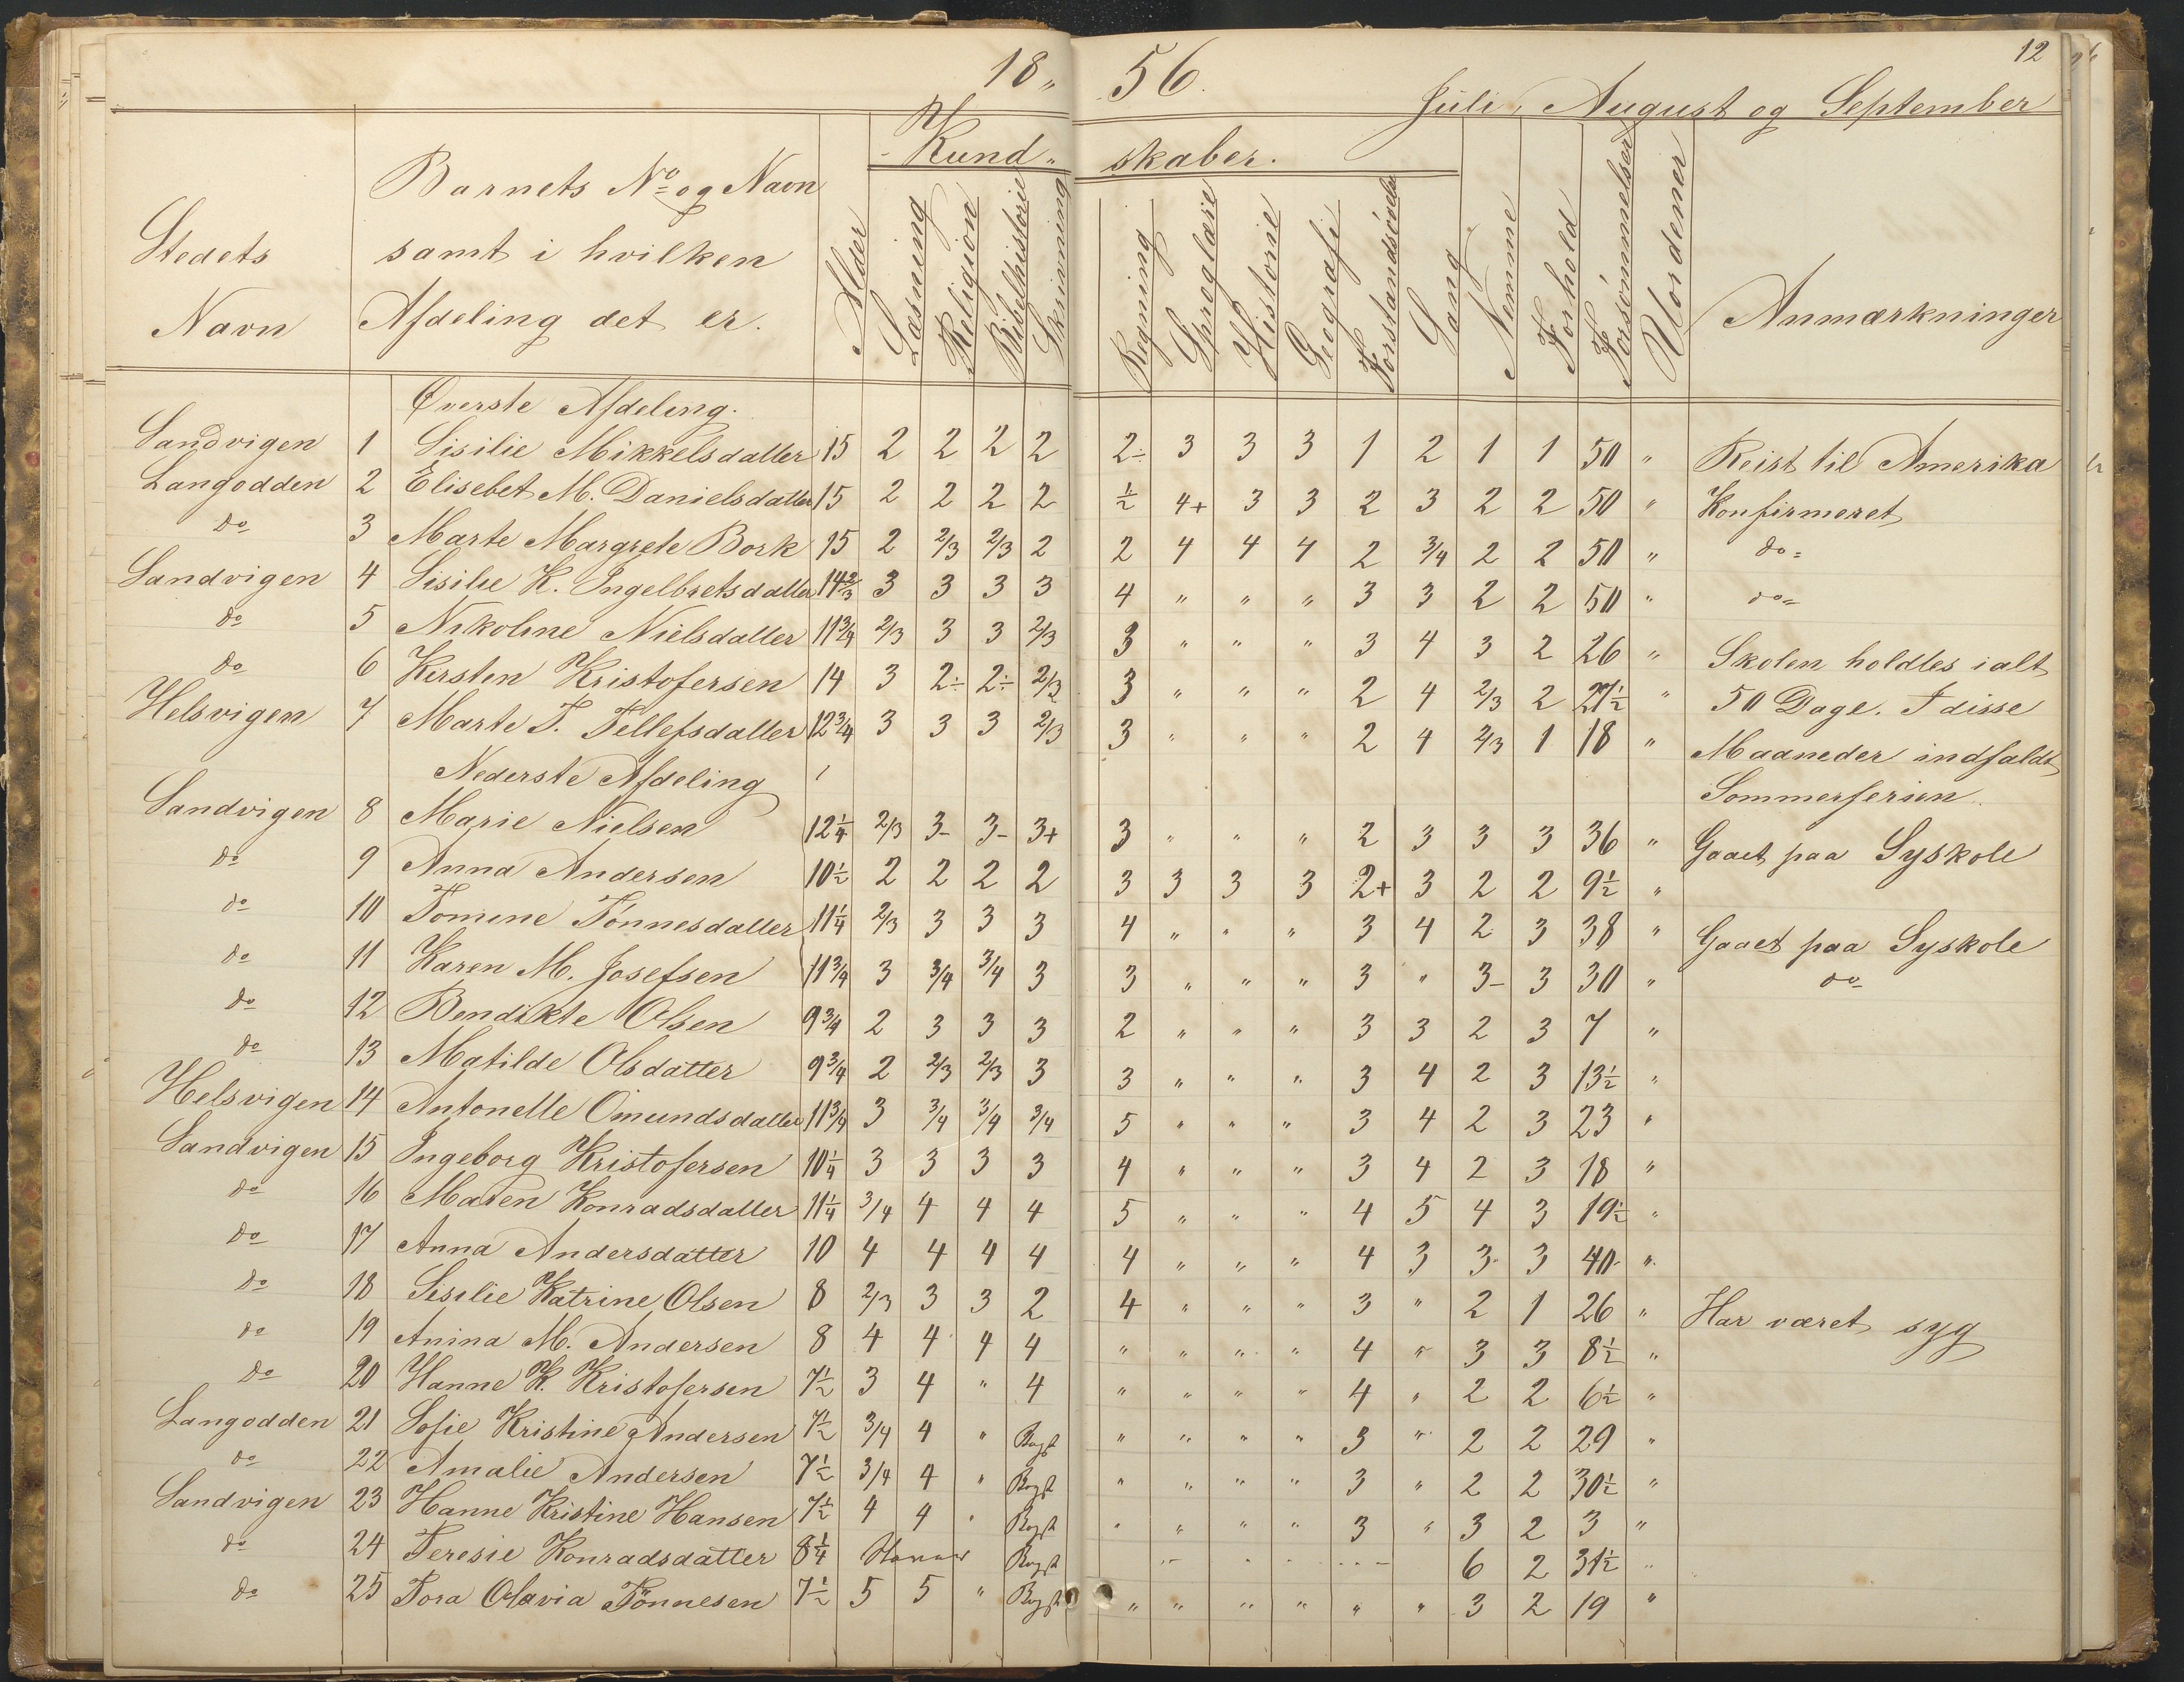 18 „ 56.
12
Juli, August og September
Kund„ skaber.
Stedets Navn
Barnets No og Navn
samt i hvilken
Afdeling det er.
Alder Læsning Religion Bibelhistorie Skrivning Regning Sproglære Historie Geografi Forstandsøvelse Sang Nemme Forhold Forsömmelser Uordener Anmærkninger
Øverste Afdeling.
Sandvigen 1 Sisilie Mikkelsdatter 15 2 2 2 2 2÷ 3 3 3 1 2 1 1 50 „ Reist til Amerika
Langodden 2 Elisebet M. Danielsdatter 15 2 2 2 2 ½ 4+ 3 3 2 3 2 2 50 „ Konfirmeret
do 3 Marte Margrete Bork 15 2 2/3 2/3 2 2 4 4 4 2 3/4 2 2 50 „ do
Sandvigen 4 Sisilie K. Ingelbretsdatter 14 2/3 3 3 3 3 4 „ „ „ 3 3 2 2 50 „ do
do 5 Nikoline Nielsdatter 11 3/4 2/3 3 3 2/3 3 „ „ „ 3 4 3 2 26 „ Skolen holdtes ialt
do 6 Kirsten Kristofersen 14 3 2÷ 2÷ 2/3 3 „ „ „ 2 4 2/3 2 27½ „ 50 Dage. I disse
Helsvigen 7 Marte T. Tellefsdatter 12 3/4 3 3 3 2/3 3 „ „ „ 2 4 2/3 1 18 „ Maaneder indfaldt
Nederste Afdeling Sommerferien.
Sandvigen 8 Marie Nielsen 12¼ 2/3 3- 3- 3+ 3 „ „ „ 2 3 3 3 36 „ Gaaet paa Syskole
do 9 Anna Andersen 10½ 2 2 2 2 3 3 3 3 2+ 3 2 2 9½ „
do 10 Tomine Tönnesdatter 11¼ 2/3 3 3 3 4 „ „ „ 3 4 2 3 38 „ Gaaet paa Syskole
do 11 Karen M. Josefsen 11 3/4 3 3/4 3/4 3 3 „ „ „ 3 „ 3- 3 30 „ do
do 12 Bendikte Olsen 9 3/4 2 3 3 3 2 „ „ „ 3 3 2 3 7 „
do 13 Matilde Olsdatter 9 3/4 2 2/3 2/3 3 3 „ „ „ 3 4 2 3 13½ „
Helsvigen 14 Antonette Omundsdatter 11 3/4 3 3/4 3/4 3/4 5 „ „ „ 3 4 2 3 23 „
Sandvigen 15 Ingeborg Kristofersen 10¼ 3 3 3 3 4 „ „ „ 3 4 2 3 18 „
do 16 Maren Konradsdatter 11¼ 3/4 4 4 4 5 „ „ „ 4 5 4 3 19½ „
do 17 Anna Andersdatter 10 4 4 4 4 4 „ „ „ 4 3 3 3 40 „
do 18 Sisilie Katrine Olsen 8 2/3 3 3 2 4 „ „ „ 3 „ 2 1 26 „ Har været syg
do 19 Anina M. Andersen 8 4 4 4 4 „ „ „ „ 4 „ 3 3 8½ „
do 20 Hanne K. Kristofersen 7½ 3 4 „ 4 „ „ „ „ 4 „ 2 2 6½ „
Langodden 21 Sofie Kristine Andersen 7½ 3/4 4 „ Bogst „ „ „ „ 3 „ 2 2 29 „
do 22 Amalie Andersen 7½ 3/4 4 „ Bogst „ „ „ „ 3 „ 2 2 30½ „
Sandvigen 23 Hanne Kristine Hansen 7½ 4 4 „ Bogst „ „ „ „ 3 „ 3 2 3 „
do 24 Teresie Konradsdatter 8¼ Bogst 6 2 31½ „
do 25 Tora Olavia Tönnesen 7½ 5 5 „ Bogst „ „ „ „ „ „ 3 2 19 „